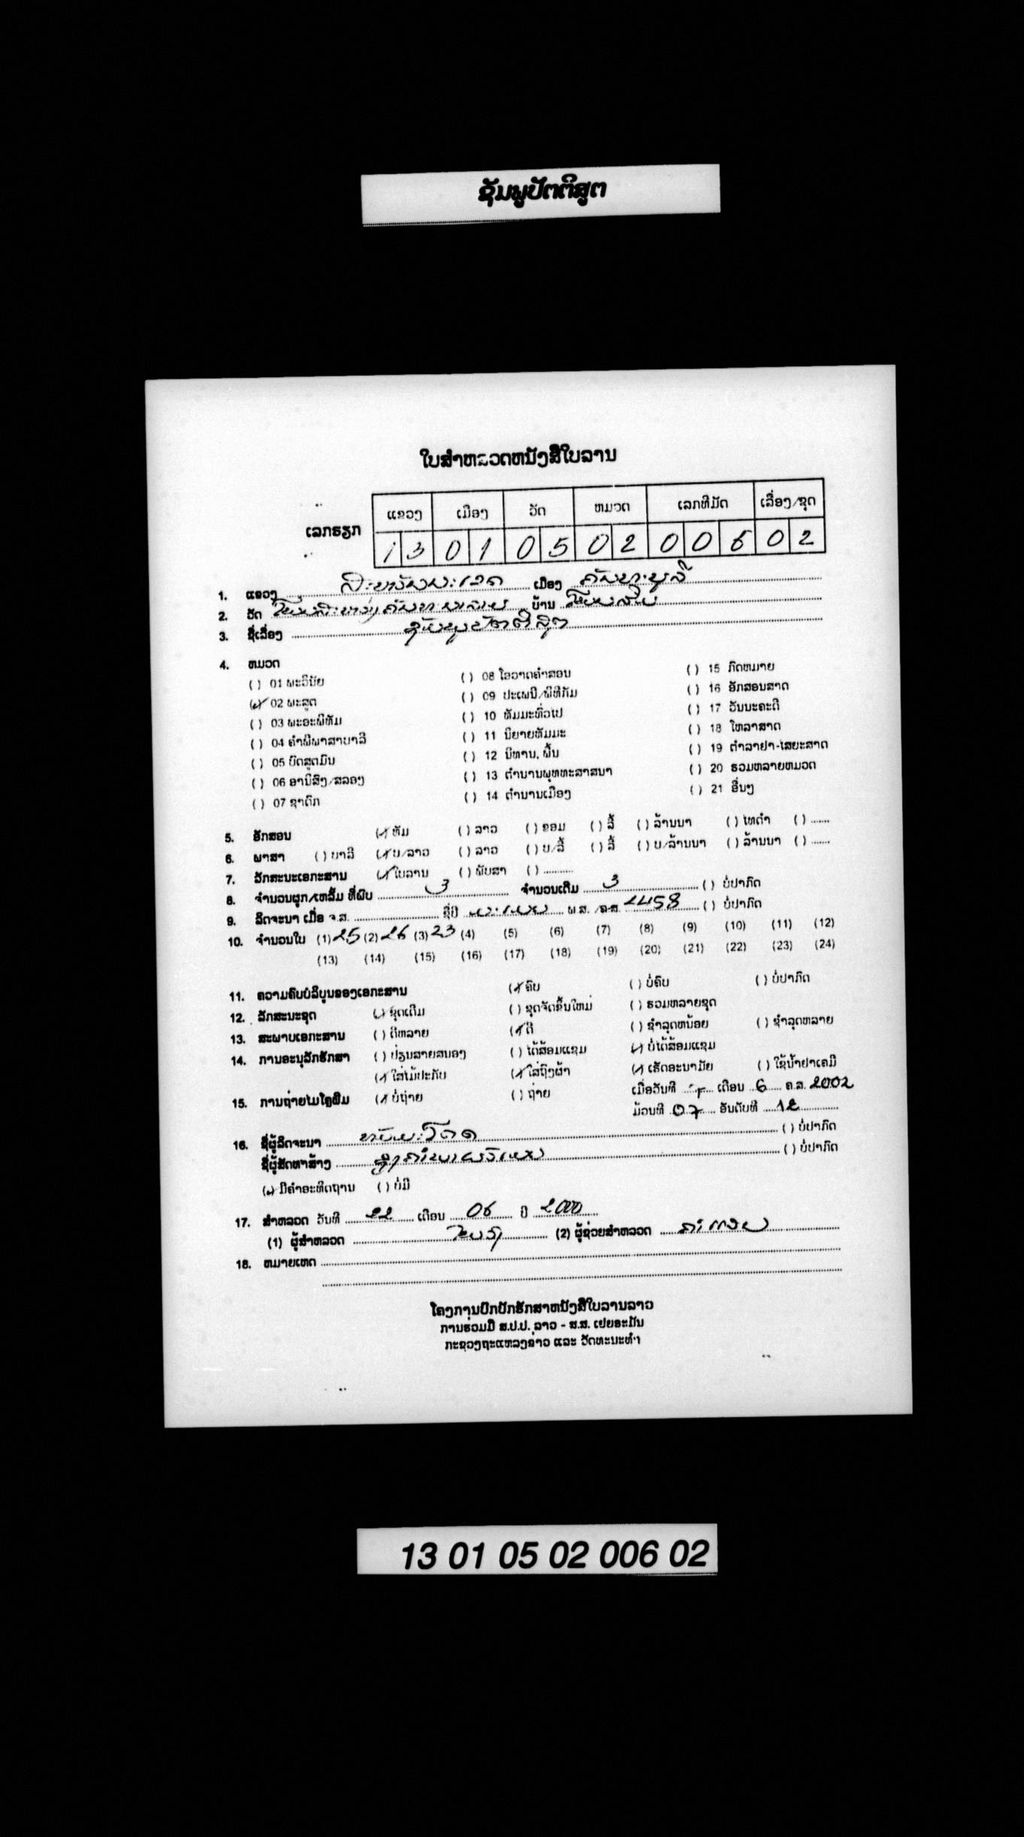 ຊັມພູປັຕຕິສູຕ
ໃບສຳຫລວດຫນັງສືໃບລານ
ເລກຮຽກ
ແຂວງ ເມືອງ ວັດ ຫມວດ ເລກທີມັດ ເລື່ອງ/ຊຸດ
1 3 0 1 0 5 0 2 0 0 6 0 2
1. ແຂວງ ສະຫວັນນະເຂດ ເມືອງ ຄັນທະບູລີ
2. ວັດ ບ້ານ
3. ຊື່ເລື່ອງ ຊັມພູປັຕຕິສູຕ
4. ຫມວດ
( ) 01 ພະວິໄນ ( ) 08 ໂອວາດຄຳສອນ ( ) 15 ກົດຫມາຍ
(✓) 02 ພະສູດ ( ) 09 ປະເພນີ/ພິທີກັມ ( ) 16 ອັກສອນສາດ
( ) 03 ພະອະພິທັມ ( ) 10 ທັມມະທົ່ວໄປ ( ) 17 ວັນນະຄະດີ
( ) 04 ຄຳພີພາສາບາລີ ( ) 11 ນິຍາຍທັມມະ ( ) 18 ໂຫລາສາດ
( ) 05 ບົດສູດມົນ ( ) 12 ນິທານ, ພື້ນ ( ) 19 ຕຳລາຢາ-ໄສຍະສາດ
( ) 06 ອານິສົງ/ສລອງ ( ) 13 ຕຳນານພຸທທະສາສນາ ( ) 20 ຮວມຫລາຍຫມວດ
( ) 07 ຊາດົກ ( ) 14 ຕຳນານເມືອງ ( ) 21 ອື່ນໆ
5. ອັກສອນ (✓) ທັມ ( ) ລາວ ( ) ຂອມ ( ) ລື້ ( ) ລ້ານນາ ( ) ໄທດຳ ( ) ......
6. ພາສາ ( ) ບາລີ (✓) ບ/ລາວ ( ) ລາວ ( ) ບ/ລື້ ( ) ລື້ ( ) ບ/ລ້ານນາ ( ) ລ້ານນາ ( ) ......
7. ລັກສະນະເອກະສານ (✓) ໃບລານ ( ) ພັບສາ ( ) .........
8. ຈຳນວນຜູກ/ເຫລັ້ມ ທີ່ພົບ 3 ຈຳນວນເດີມ 3 ( ) ບໍ່ປາກົດ
9. ລິດຈະນາ ເມື່ອ ຈ.ສ. ຊື່ປີ ພ.ສ./ຄ.ສ. 2458 ( ) ບໍ່ປາກົດ
10. ຈຳນວນໃບ (1) 25 (2) 26 (3) 23 (4) (5) (6) (7) (8) (9) (10) (11) (12)
(13) (14) (15) (16) (17) (18) (19) (20) (21) (22) (23) (24)
11. ຄວາມຄົບບໍລິບູນຂອງເອກະສານ (✓) ຄົບ ( ) ບໍ່ຄົບ ( ) ບໍ່ປາກົດ
12. ລັກສະນະຊຸດ (✓) ຊຸດເດີມ ( ) ຊຸດຈັດຂຶ້ນໃຫມ່ ( ) ຮວມຫລາຍຊຸດ
13. ສະພາບເອກະສານ ( ) ດີຫລາຍ (✓) ດີ ( ) ຊຳລຸດຫນ້ອຍ ( ) ຊຳລຸດຫລາຍ
14. ການອະນຸລັກຮັກສາ ( ) ປ່ຽນສາຍສນອງ ( ) ໄດ້ສ້ອມແຊມ (✓) ບໍ່ໄດ້ສ້ອມແຊມ
(✓) ໃສ່ໄມ້ປະກັບ (✓) ໃສ່ຖົງຜ້າ (✓) ເຮັດອະນາມັຍ ( ) ໃຊ້ນ້ຳຢາເຄມີ
15. ການຖ່າຍໄມໂຄຼຟິມ (✓) ບໍ່ຖ່າຍ ( ) ຖ່າຍ ເມື່ອວັນທີ ເດືອນ 6 ຄ.ສ. 2002
ມ້ວນທີ 07 ອັນດັບທີ 12
16. ຊື່ຜູ້ລິດຈະນາ ( ) ບໍ່ປາກົດ
ຊື່ຜູ້ສັດທາສ້າງ ( ) ບໍ່ປາກົດ
(✓) ມີຄຳອະທິດຖານ ( ) ບໍ່ມີ
17. ສຳຫລວດ ວັນທີ 22 ເດືອນ 06 ປີ 2000
(1) ຜູ້ສຳຫລວດ (2) ຜູ້ຊ່ວຍສຳຫລວດ
18. ຫມາຍເຫດ
ໂຄງການປົກປັກຮັກສາຫນັງສືໃບລານລາວ
ການຮວມມື ສ.ປ.ປ. ລາວ - ສ.ສ. ເຢຍຣະມັນ
ກະຊວງຖະແຫລງຂ່າວ ແລະ ວັດທະນະທຳ
13 01 05 02 006 02